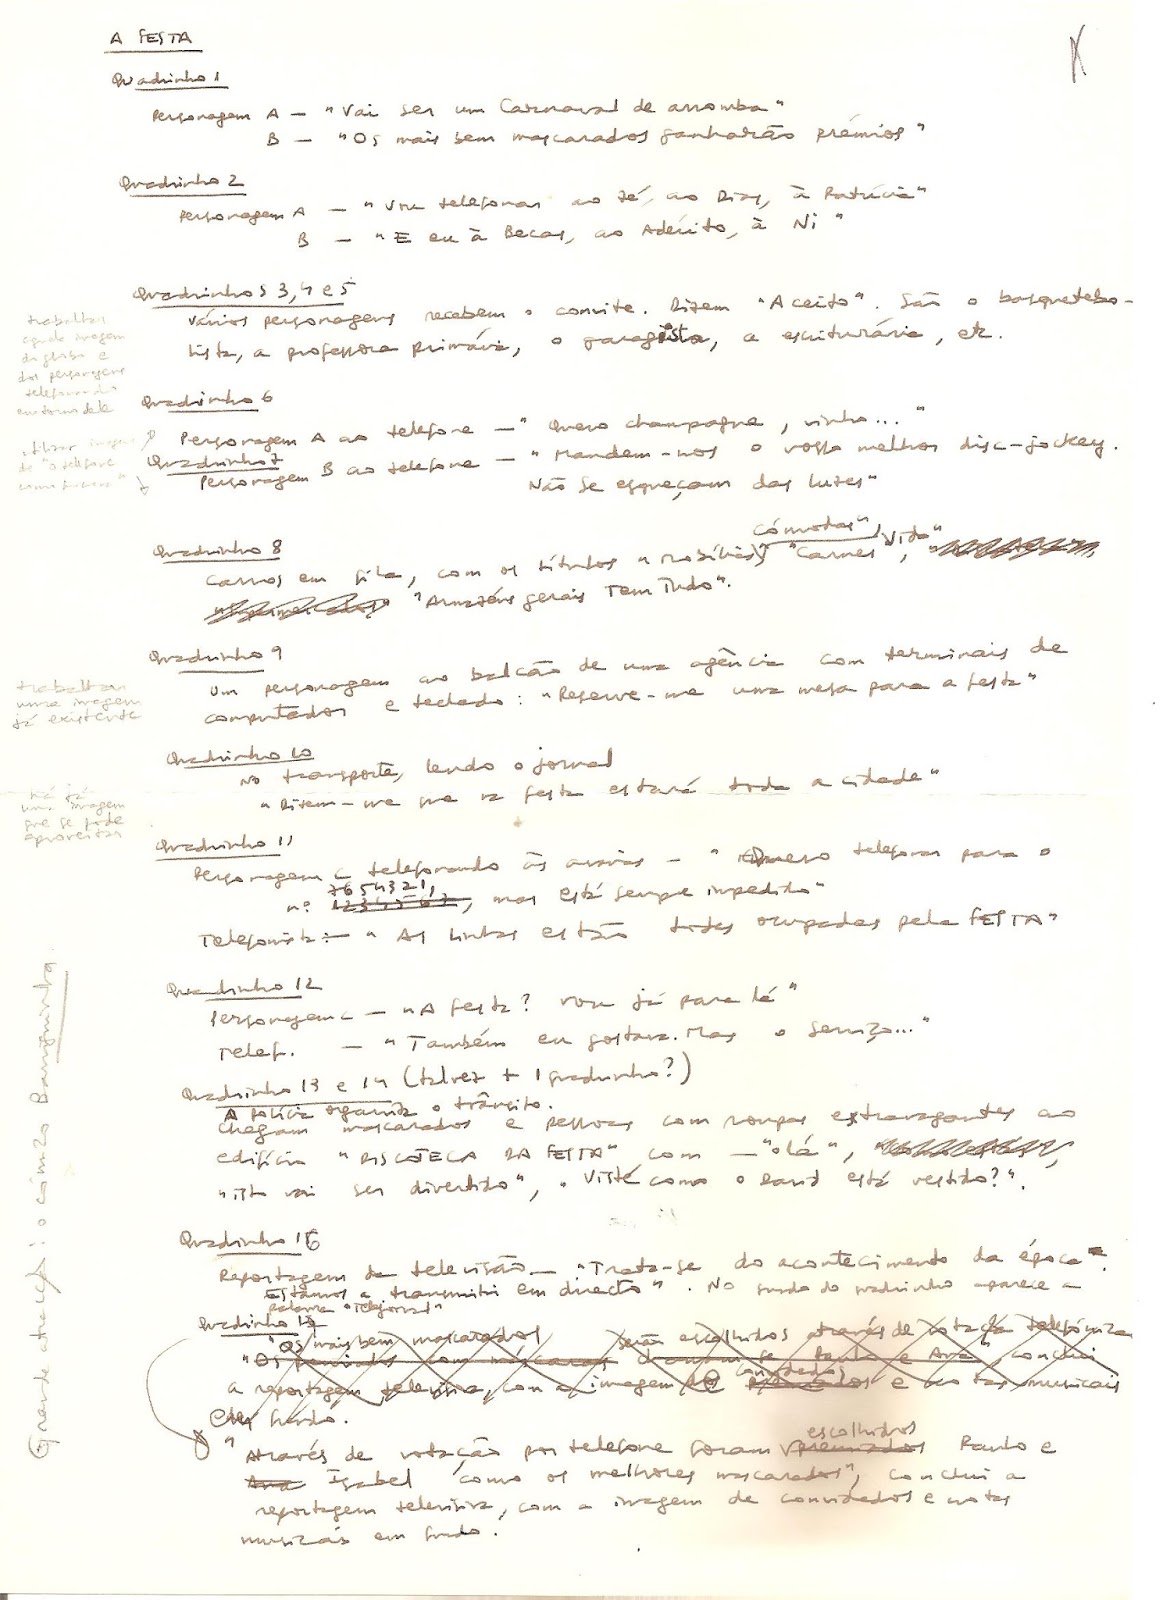 A FESTA
Quadrinho 1
Personagem A — "Vai ser um Carnaval de arromba"
B — "Os mais bem mascarados ganharão prémios"
Quadrinho 2
Personagem A — "Vou telefonar ao Zé, ao Dias, à Patrícia"
B — "E eu à Becas, ao Adérito, à Ni"
Quadrinhos 3, 4 e 5
Vários personagens recebem o convite. Dizem "Aceito". São o basquetebo-
lista, a professora primária, o garagista, a escriturária, etc.
trabalhar
aquela imagem
do globo e
dos personagens
telefonando
em torno dele
Quadrinho 6
Personagem A ao telefone — "Quero champagne, vinho..."
utilizar imagem
de "o telefone
como
Quadrinho 7
Personagem B ao telefone — "Mandem-nos o vosso melhor disc-jockey.
Não se esqueçam das luzes"
Quadrinho 8
Carros em fila, com os títulos "Mobílias Cómodas", "Carnes Vida",
"Armazéns gerais Tem Tudo".
Quadrinho 9
Um personagem ao balcão de uma agência com terminais de
computador e teclado: "Reserve-me uma mesa para a festa"
trabalhar
uma imagem
já existente
Quadrinho 10
No transporte, lendo o jornal
"Dizem-me que na festa estará toda a cidade"
há já
uma imagem
que se pode
aproveitar
Quadrinho 11
Personagem C telefonando às avarias — "Quero telefonar para o
nº 7654321, mas está sempre impedido"
1234567
Telefonista: — "As linhas estão todas ocupadas pela FESTA"
Quadrinho 12
Personagem C — "A festa? Vou já para lá"
Telef. — "Também eu gostava. Mas o serviço..."
Quadrinho 13 e 14 (talvez + 1 quadrinho?)
A polícia organiza o trânsito.
Chegam mascarados e pessoas com roupas extravagantes ao
edifício "DISCOTECA DA FESTA" com — "olá",
"isto vai ser divertido", "Viste como o David está vestido?".
Quadrinho 15
Reportagem da televisão — "Trata-se do acontecimento da época.
Estamos a transmitir em directo". No fundo do quadrinho aparece a
palavra "Telejornal"
Quadrinho
"Os mais bem mascarados serão escolhidos através de votação telefónica
"Os premiados com máscaras chamam-se Paulo e Ana", conclui
a reportagem televisiva, com a imagem de convidados e notas musicais
em fundo.
"Através de votação por telefone foram escolhidos Paulo e
premiados
Ana Isabel como os melhores mascarados", conclui a
reportagem televisiva, com a imagem de convidados e notas
musicais em fundo.
Grande atracção: o cómico